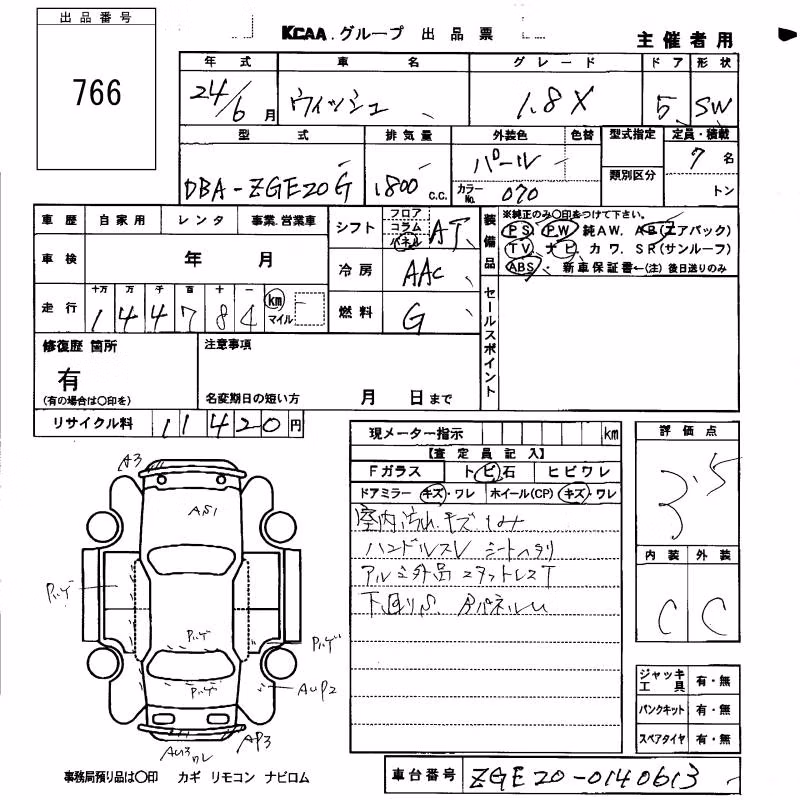 出品番号
766
KCAA.グループ 出品票
主催者用
年式 車名 グレード ドア 形状
24/6月 ウィッシュ 1.8X 5 SW
型式 排気量 外装色 色替 型式指定 定員・積載
DBA-ZGE20G 1800 c.c. パール 7名
カラーNo. 070 類別区分 トン
車歴 自家用 レンタ 事業.営業車
シフト フロア コラム パネル AT
装備品
※純正のみ○印をつけて下さい。
PS PW 純AW. AB(エアバック)
TV ナビ カワ. SR(サンルーフ)
ABS 新車保証書←(注)後日送りのみ
車検 年 月
冷房 AAC
走行 十万 万 千 百 十 一
144784 km マイル
燃料 G
セールスポイント
修復歴 箇所
有
(有の場合は○印を)
注意事項
名変期日の短い方 月 日まで
リサイクル料 11420円
現メーター指示 km
【査定員記入】
Fガラス トビ石 ヒビワレ
ドアミラー キズ・ワレ ホイール(CP) キズ・ワレ
室内汚れ.キズ
ハンドルスレ シートヘタリ
アルミ外品 スタットレスT
下回りS. Bパネル
評価点
3.5
内装 外装
C C
ジャッキ工具 有・無
パンクキット 有・無
スペアタイヤ 有・無
A3
AS1
P.バゲ
P.バゲ
P.バゲ
P.バゲ
AUP2
AU3 ワレ
AP3
事務局預り品は○印 カギ リモコン ナビロム
車台番号 ZGE20-0140613